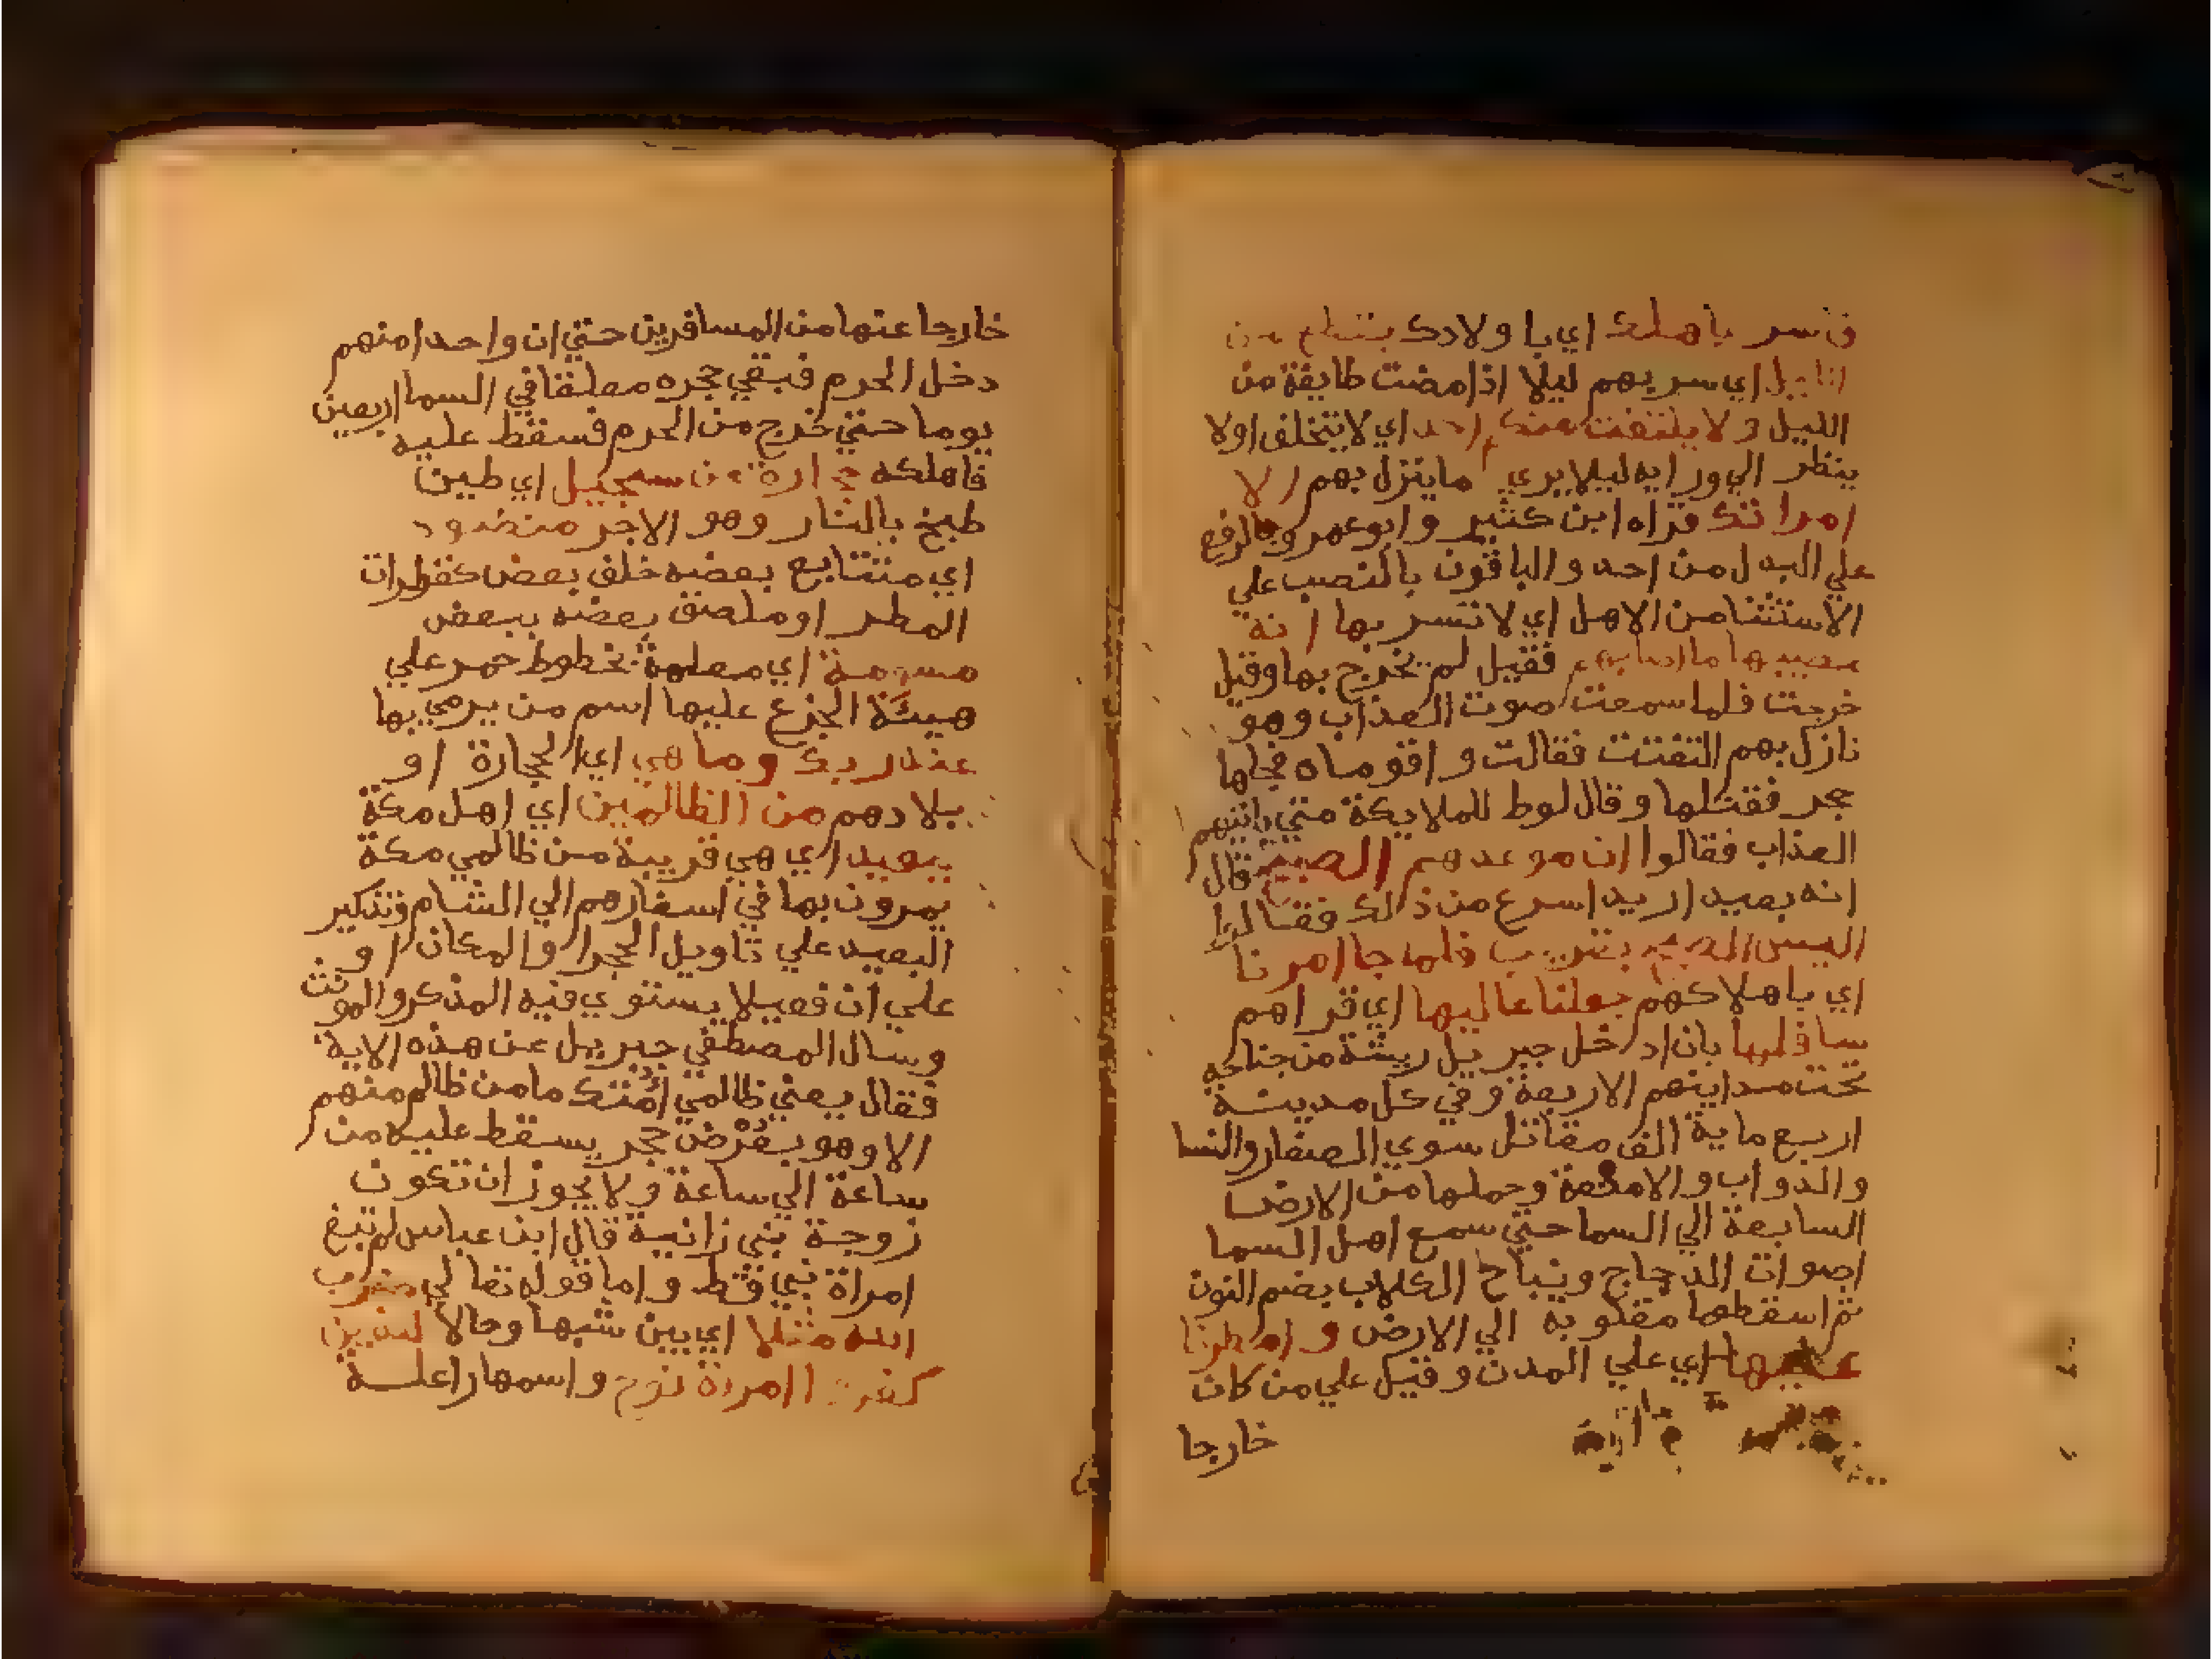 فاسر باهلك اي با ولادك بقطع من
الليل اي سر بهم ليلا اذا مضت طايفة من
الليل ولا يلتفت منكم احد اي لا يتخلف اولا
ينظر الي ورايه ليلا يري ما ينزل بهم الا
امراتك قراه ابن كثير وابو عمرو بالرفع
علي البدل من احد والباقون بالنصب علي
الاستثنا من الاهل اي لا تسر بها انه
مصيبها ما اصابهم فقيل لم يخرج بها وقيل
خرجت فلما سمعت صوت العذاب وهو
نازل بهم التفتت فقالت واقوماه فجاها
حجر فقتلها وقال لوط للملايكة متي ياتيهم
العذاب فقالوا ان موعدهم الصبح قال
انه بعيد اريد اسرع من ذلك فقالوا
اليس الصبح بقريب فلما جا امرنا
اي باهلاكهم جعلنا عاليها اي قراهم
سافلها بان ادخل جبريل ريشة من جناحه
تحت مداينهم الاربعة وفي كل مدينة
اربع ماية الف مقاتل سوي الصغار والنسا
والدواب والامتعة وحملها من الارض
السابعة الي السما حتي سمع اهل السما
اصوات الدجاج ونباح الكلاب بضم النون
ثم اسقطها مقلوبة الي الارض وامطرنا
عليها اي علي المدن وقيل علي من كان
خارجا
خارجا عنها من المسافرين حتي ان واحدا منهم
دخل الحرم فبقي حجره معلقا في السما اربعين
يوما حتي خرج من الحرم فسقط عليه
فاهلكه حجارة من سجيل اي طين
طبخ بالنار وهو الاجر منضود
اي متتابع بعضه خلف بعض كقطرات
المطر او ملصق بعضه ببعض
مسومة اي معلمة بخطوط حمر علي
هيئة الجزع عليها اسم من يرمي بها
عند ربك وما هي اي الحجارة او
بلادهم من الظالمين اي اهل مكة
ببعيد اي هي قريبة من ظالمي مكة
يمرون بها في اسفارهم الي الشام وتذكير
البعيد علي تاويل الحجر او المكان او
علي ان فعيلا يستوي فيه المذكر والمونث
وسال المصطفي جبريل عن هذه الاية
فقال يعني ظالمي امتك ما من ظالم منهم
الا وهو بعرض حجر يسقط عليه من
ساعة الي ساعة ولا يجوز ان تكون
زوجة نبي زانية قال ابن عباس لم تبغ
امراة نبي قط واما قوله تعالي ضرب
الله مثلا اي بين شبها وحالا للذين
كفروا امراة نوح واسمها راعلة